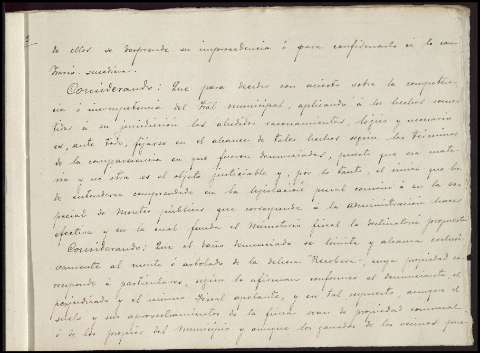 de ellos se desprende su improcedencia ó para confirmarla si lo con-
trario sucediera.
Considerando: Que para decidir con acierto sobre la competen-
cia ó incompetencia del Tral municipal, aplicando á los hechos some-
tidos a su jurisdicción los aludidos razonamientos, lógico y necesario
es, ante todo, fijarse en el alcance de tales hechos segun los términos
de la comparecencia en que fueron denunciados, puesto que esa mate-
ria y no otra es el objeto justiciable y, por lo tanto, el único que ha de
entenderse comprendido en la legislación penal común ó en la es-
pecial de Montes públicos que corresponde á la administración hacer
efectiva y en la cual funda el Ministerio fiscal la declinatoria propuesta
Considerando: Que el daño denunciado se limita y alcanza exclusi-
vamente al monte ó arbolado de la dehesa cuya propiedad co-
rresponde á particulares, según lo afirman conformes el denunciante, el
perjudicado y el mismo Fiscal apelante, y en tal supuesto, aunque el
suelo y sus aprovechamientos de la finca sean de propiedad comunal
ó de los propios del Municipio y aunque los ganados de los vecinos